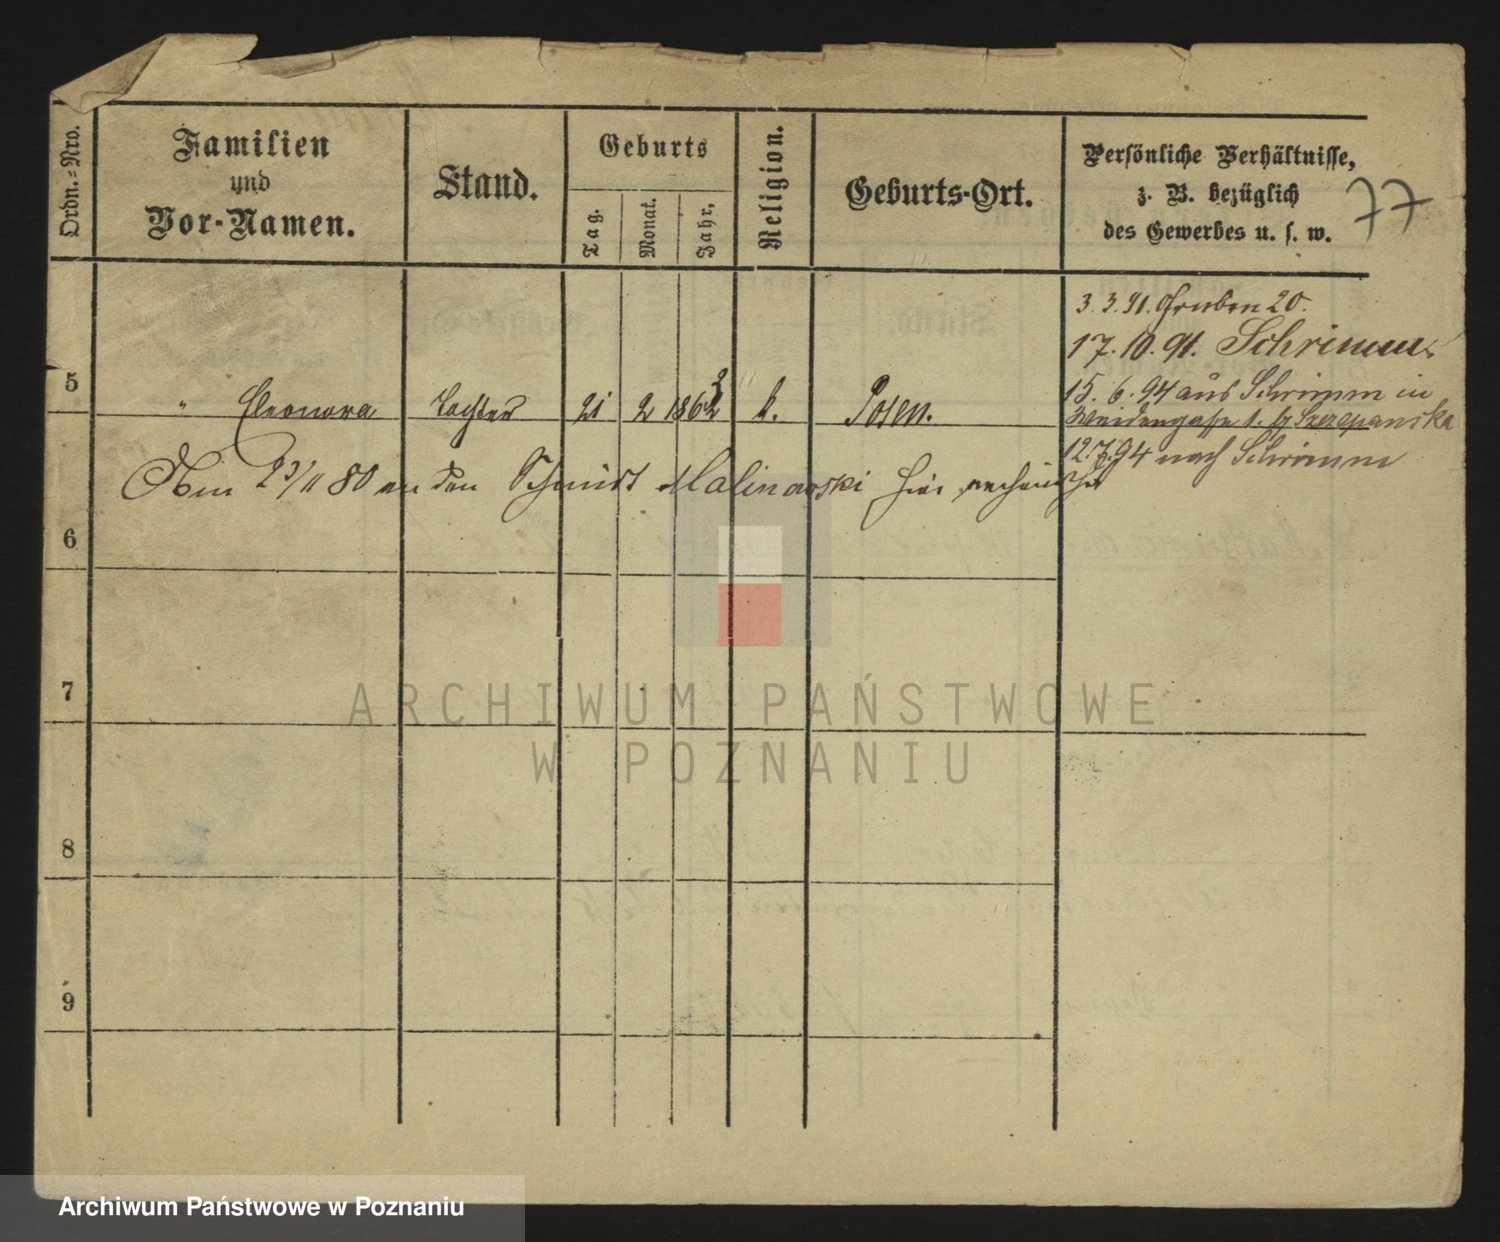 Ordn.-Nro.
Familien
und
Vor-Namen.
Stand.
Geburts
Tag.
Monat.
Jahr.
Religion.
Geburts-Ort.
Persönliche Verhältnisse,
z. B. bezüglich
des Gewerbes u. s. w.
77
3. 3. 91. Gruben 20.
17. 10. 91. Schrimm.
5
" Eleonora Tochter 21 2 1862 k. Posen.
15. 6. 94 aus Schrimm in
Weidengasse 1. bei Szczepanska
12. 7. 94 nach Schrimm
Am 23/11 80 an den Schmidt Malinowski hier verheirathet
6
7
8
9
ARCHIWUM PAŃSTWOWE
W POZNANIU
Archiwum Państwowe w Poznaniu